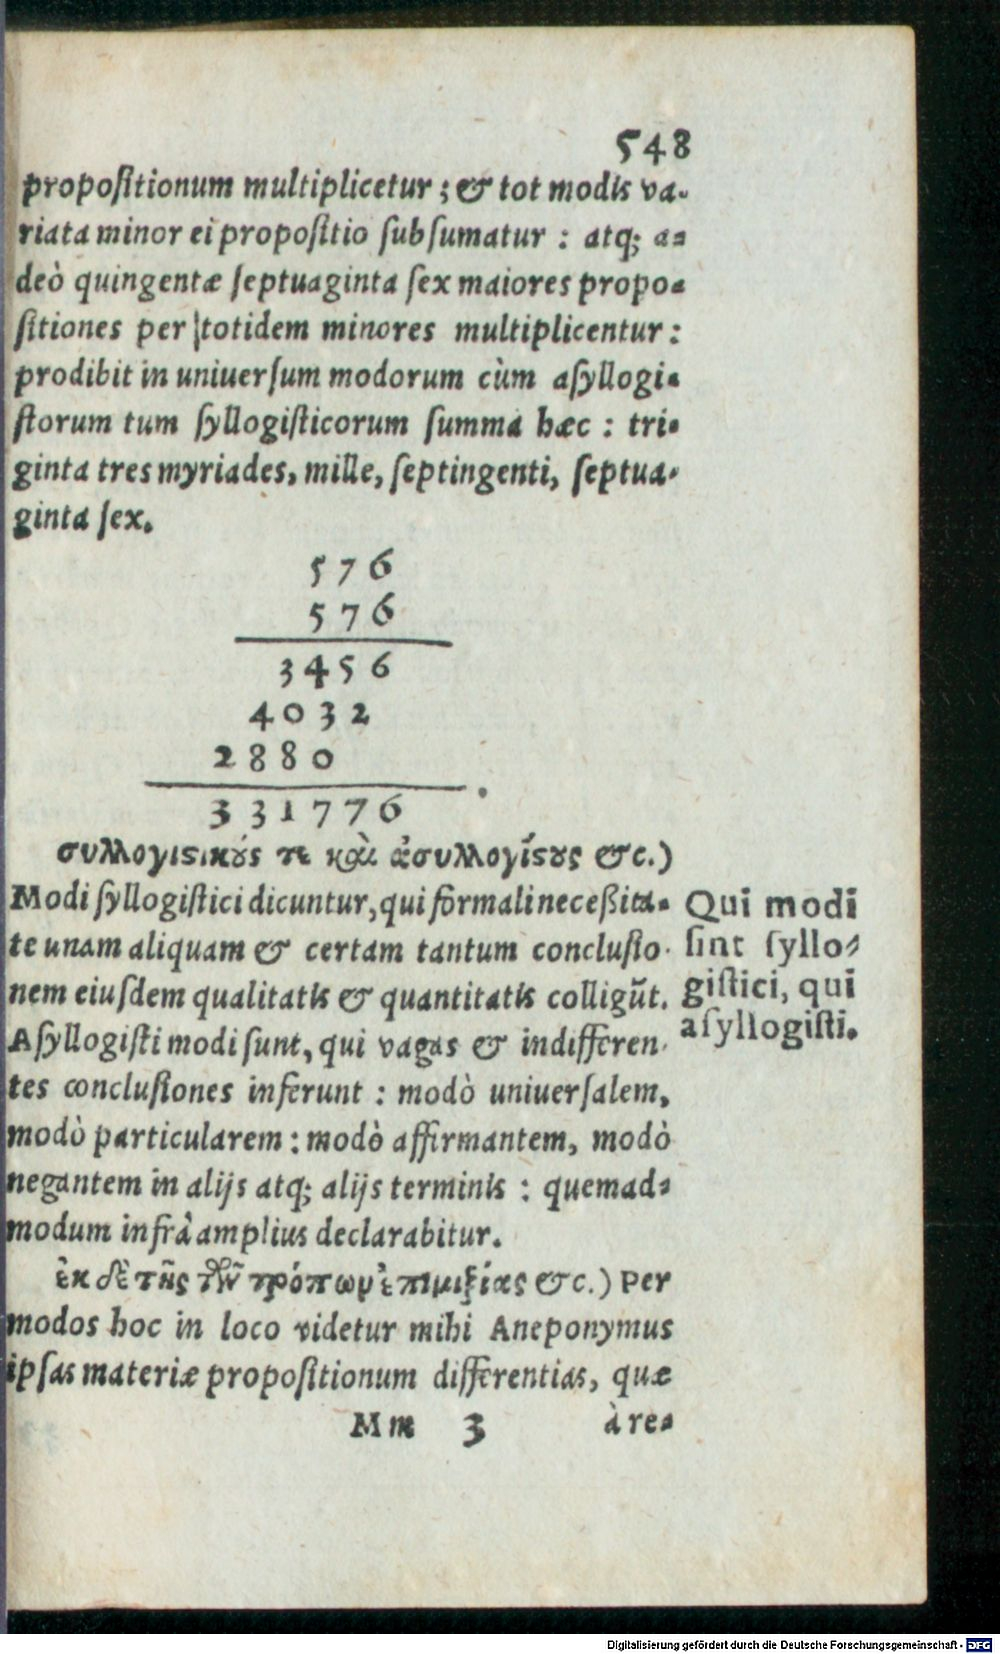 548
propoſitionum multiplicetur ; & tot modis va-
riata minor ei propoſitio ſubſumatur : atq; a-
deò quingentæ ſeptuaginta ſex maiores propo-
ſitiones per totidem minores multiplicentur:
prodibit in uniuerſum modorum cùm aſyllogi-
ſtorum tum ſyllogiſticorum ſumma hæc : tri-
ginta tres myriades, mille, ſeptingenti, ſeptua-
ginta ſex.
576
576
3456
4032
2880
331776
συλλογιϛικούς τε καὶ ἀσυλλογίϛους &c.)
Modi ſyllogiſtici dicuntur, qui formali neceßita-
te unam aliquam & certam tantum concluſio-
nem eiuſdem qualitatis & quantitatis colligūt.
Aſyllogiſti modi ſunt, qui vagas & indifferen-
tes concluſiones inferunt : modò uniuerſalem,
modò particularem : modò affirmantem, modò
negantem in alijs atq; alijs terminis : quemad-
modum infrà amplius declarabitur.
Qui modi
ſint ſyllo-
giſtici, qui
aſyllogiſti.
ἐκ δὲ τῆς τῶν τρόπων ἐπιμιξίας &c.) Per
modos hoc in loco videtur mihi Aneponymus
ipſas materiæ propoſitionum differentias, quæ
Mm 3 à re-
Digitalisierung gefördert durch die Deutsche Forschungsgemeinschaft - DFG